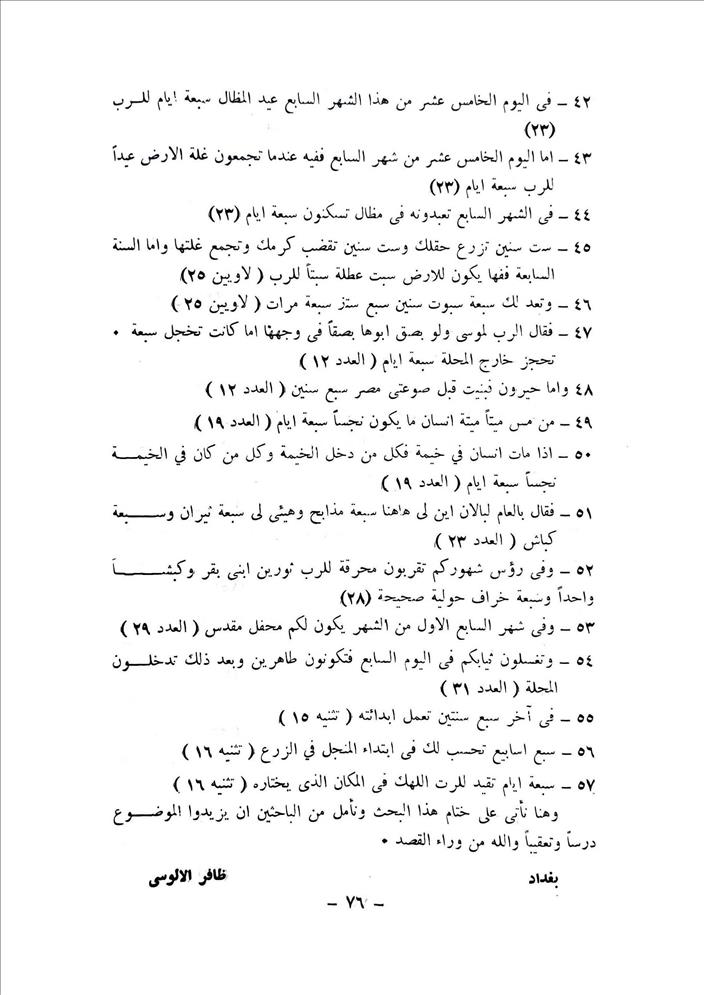 ٤٢ – فى اليوم الخامس عشر من هذا الشهر السابع عيد المظال سبعة ايام للرب
(٢٣)
٤٣ – اما اليوم الخامس عشر من شهر السابع ففيه عندما تجمعون غلة الارض عيداً
للرب سبعة ايام (٢٣)
٤٤ – فى الشهر السابع تعبدونه فى مظال تسكنون سبعة ايام (٢٣)
٤٥ – ست سنين تزرع حقلك وست سنين تقضب كرمك وتجمع غلتها واما السنة
السابعة ففها يكون للارض سبت عطلة سبتاً للرب ( لاويين ٢٥)
٤٦ – وتعد لك سبعة سبوت سنين سبع ستز سبعة مرات ( لاويين ٢٥ )
٤٧ – فقال الرب لموسى ولو بصق ابوها بصقاً فى وجهها اما كانت تخجل سبعة .
تحجز خارج المحلة سبعة ايام ( العدد ١٢ )
٤٨ واما حيرون فبنيت قبل صوعتى مصر سبع سنين ( العدد ١٢ )
٤٩ – من مس ميتاً ميتة انسان ما يكون نجساً سبعة ايام ( العدد ١٩ )
٥٠ – اذا مات انسان في خيمة فكل من دخل الخيمة وكل من كان في الخيمة
نجساً سبعة ايام ( العدد ١٩ )
٥١ – فقال بالعام لبالان اين لى هاهنا سبعة مذابح وهيئى لى سبعة ثيران وسبعة
كباش ( العدد ٢٣ )
٥٢ – وفى رؤس شهوركم تقربون محرقة للرب ثورين ابنى بقر وكبشاً
واحداً وسبعة خراف حولية صحيحة (٢٨)
٥٣ – وفى شهر السابع الاول من الشهر يكون لكم محفل مقدس ( العدد ٢٩ )
٥٤ – وتغسلون ثيابكم فى اليوم السابع فتكونون طاهرين وبعد ذلك تدخلون
المحلة ( العدد ٣١ )
٥٥ – فى آخر سبع سنتين تعمل ابدائته ( تثنيه ١٥ )
٥٦ – سبع اسابيع تحسب لك فى ابتداء المنجل في الزرع ( تثنيه ١٦ )
٥٧ – سبعة ايام تقيد للرت اللهك فى المكان الذى يختاره ( تثنيه ١٦ )
وهنا نأتى على ختام هذا البحث ونأمل من الباحثين ان يزيدوا الموضوع
درساً وتعقيباً والله من وراء القصد .
بغداد ظافر الالوسى
– ٧٦ –